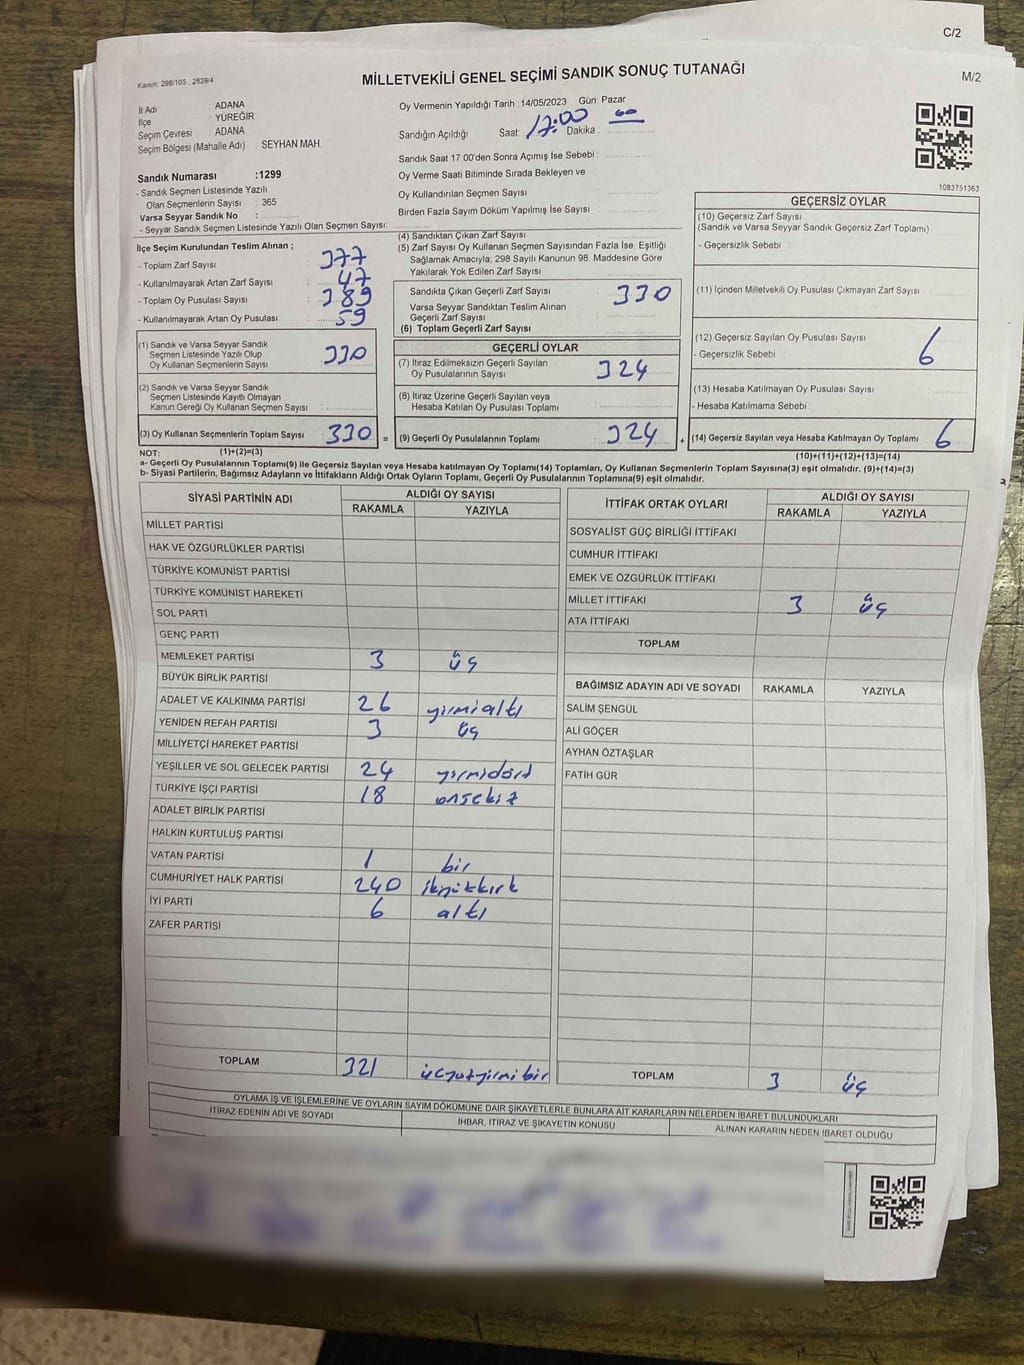 C/2
Kanun: 298/105 , 2839/4
MİLLETVEKİLİ GENEL SEÇİMİ SANDIK SONUÇ TUTANAĞI
M/2
İl Adı ADANA
İlçe : YÜREĞİR
Seçim Çevresi : ADANA
Seçim Bölgesi (Mahalle Adı) : SEYHAN MAH.
Sandık Numarası :1299
- Sandık Seçmen Listesinde Yazılı
Olan Seçmenlerin Sayısı : 365
Varsa Seyyar Sandık No :
- Seyyar Sandık Seçmen Listesinde Yazılı Olan Seçmen Sayısı:
Oy Vermenin Yapıldığı Tarih :14/05/2023 Gün: Pazar
Sandığın Açıldığı Saat: 17:00 Dakika : 00
Sandık Saat 17:00'den Sonra Açımış İse Sebebi :
Oy Verme Saati Bitiminde Sırada Bekleyen ve
Oy Kullandırılan Seçmen Sayısı
Birden Fazla Sayım Döküm Yapılmış İse Sayısı :
1083751363
İlçe Seçim Kurulundan Teslim Alınan ;
- Toplam Zarf Sayısı 377
- Kullanılmayarak Artan Zarf Sayısı 47
- Toplam Oy Pusulası Sayısı 389
- Kullanılmayarak Artan Oy Pusulası 59
(1) Sandık ve Varsa Seyyar Sandık
Seçmen Listesinde Yazılı Olup
Oy Kullanan Seçmenlerin Sayısı 330
(2) Sandık ve Varsa Seyyar Sandık
Seçmen Listesinde Kayıtlı Olmayan
Kanun Gereği Oy Kullanan Seçmen Sayısı :
(3) Oy Kullanan Seçmenlerin Toplam Sayısı 330 =
(4) Sandıktan Çıkan Zarf Sayısı
(5) Zarf Sayısı Oy Kullanan Seçmen Sayısından Fazla İse, Eşitliği
Sağlamak Amacıyla; 298 Sayılı Kanunun 98. Maddesine Göre
Yakılarak Yok Edilen Zarf Sayısı
Sandıkta Çıkan Geçerli Zarf Sayısı : 330
Varsa Seyyar Sandıktan Teslim Alınan
Geçerli Zarf Sayısı :
(6) Toplam Geçerli Zarf Sayısı
GEÇERLİ OYLAR
(7) İtiraz Edilmeksizin Geçerli Sayılan
Oy Pusulalarının Sayısı : 324
(8) İtiraz Üzerine Geçerli Sayılan veya
Hesaba Katılan Oy Pusulası Toplamı
(9) Geçerli Oy Pusulalarının Toplamı 324 +
GEÇERSİZ OYLAR
(10) Geçersiz Zarf Sayısı
(Sandık ve Varsa Seyyar Sandık Geçersiz Zarf Toplamı)
- Geçersizlik Sebebi
(11) İçinden Milletvekili Oy Pusulası Çıkmayan Zarf Sayısı
(12) Geçersiz Sayılan Oy Pusulası Sayısı 6
- Geçersizlik Sebebi
(13) Hesaba Katılmayan Oy Pusulası Sayısı
- Hesaba Katılmama Sebebi :
(14) Geçersiz Sayılan veya Hesaba Katılmayan Oy Toplamı 6
NOT: (1)+(2)=(3) (10)+(11)+(12)+(13)=(14)
a- Geçerli Oy Pusulalarının Toplamı(9) ile Geçersiz Sayılan veya Hesaba katılmayan Oy Toplamı(14) Toplamları, Oy Kullanan Seçmenlerin Toplam Sayısına(3) eşit olmalıdır. (9)+(14)=(3)
b- Siyasi Partilerin, Bağımsız Adayların ve İttifakların Aldığı Ortak Oyların Toplamı, Geçerli Oy Pusulalarının Toplamına(9) eşit olmalıdır.
SİYASİ PARTİNİN ADI ALDIĞI OY SAYISI
RAKAMLA YAZIYLA
MİLLET PARTİSİ
HAK VE ÖZGÜRLÜKLER PARTİSİ
TÜRKİYE KOMÜNİST PARTİSİ
TÜRKİYE KOMÜNİST HAREKETİ
SOL PARTİ
GENÇ PARTİ
MEMLEKET PARTİSİ 3 üç
BÜYÜK BİRLİK PARTİSİ
ADALET VE KALKINMA PARTİSİ 26 yirmialtı
YENİDEN REFAH PARTİSİ 3 üç
MİLLİYETÇİ HAREKET PARTİSİ
YEŞİLLER VE SOL GELECEK PARTİSİ 24 yirmidört
TÜRKİYE İŞÇİ PARTİSİ 18 onsekiz
ADALET BİRLİK PARTİSİ
HALKIN KURTULUŞ PARTİSİ
VATAN PARTİSİ 1 bir
CUMHURİYET HALK PARTİSİ 240 ikiyüzkırk
İYİ PARTİ 6 altı
ZAFER PARTİSİ
TOPLAM 321 üçyüzyirmibir
İTTİFAK ORTAK OYLARI ALDIĞI OY SAYISI
RAKAMLA YAZIYLA
SOSYALİST GÜÇ BİRLİĞİ İTTİFAKI
CUMHUR İTTİFAKI
EMEK VE ÖZGÜRLÜK İTTİFAKI
MİLLET İTTİFAKI 3 üç
ATA İTTİFAKI
TOPLAM
BAĞIMSIZ ADAYIN ADI VE SOYADI RAKAMLA YAZIYLA
SALİM ŞENGÜL
ALİ GÖÇER
AYHAN ÖZTAŞLAR
FATİH GÜR
TOPLAM 3 üç
OYLAMA İŞ VE İŞLEMLERİNE VE OYLARIN SAYIM DÖKÜMÜNE DAİR ŞİKAYETLERLE BUNLARA AİT KARARLARIN NELERDEN İBARET BULUNDUKLARI
İTİRAZ EDENİN ADI VE SOYADI İHBAR, İTİRAZ VE ŞİKAYETİN KONUSU ALINAN KARARIN NEDEN İBARET OLDUĞU